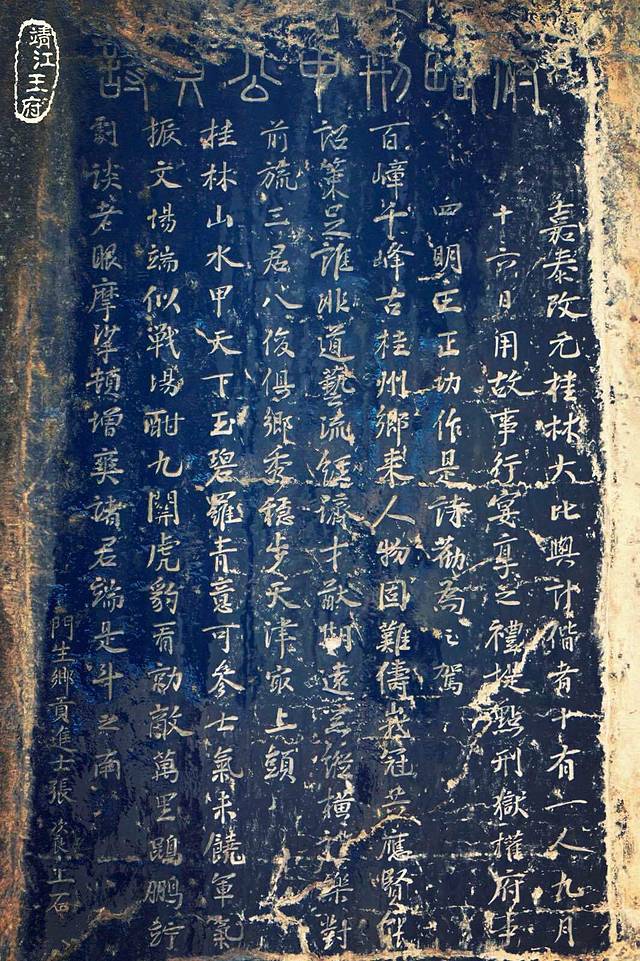 靖江王府
府略刑中公詩
嘉泰改元桂林大比與計偕者十有一人九月
十六日用故事行宴享之禮提點刑獄權府事
四明王正功作是詩勸為之駕
百嶂千峰古桂州鄉來人物固難儔峩冠共應賢能
詔策足誰非道藝流經濟才猷期遠器縱橫禮樂對
前旒三君八俊俱鄉秀穩步天津最上頭
桂林山水甲天下玉碧羅青意可參士氣未饒軍氣
振文場端似戰場酣九關虎豹看勍敵萬里鵾鵬佇
劇談老眼摩挲頓增爽諸君端是斗之南
門生鄉貢進士張次良上石